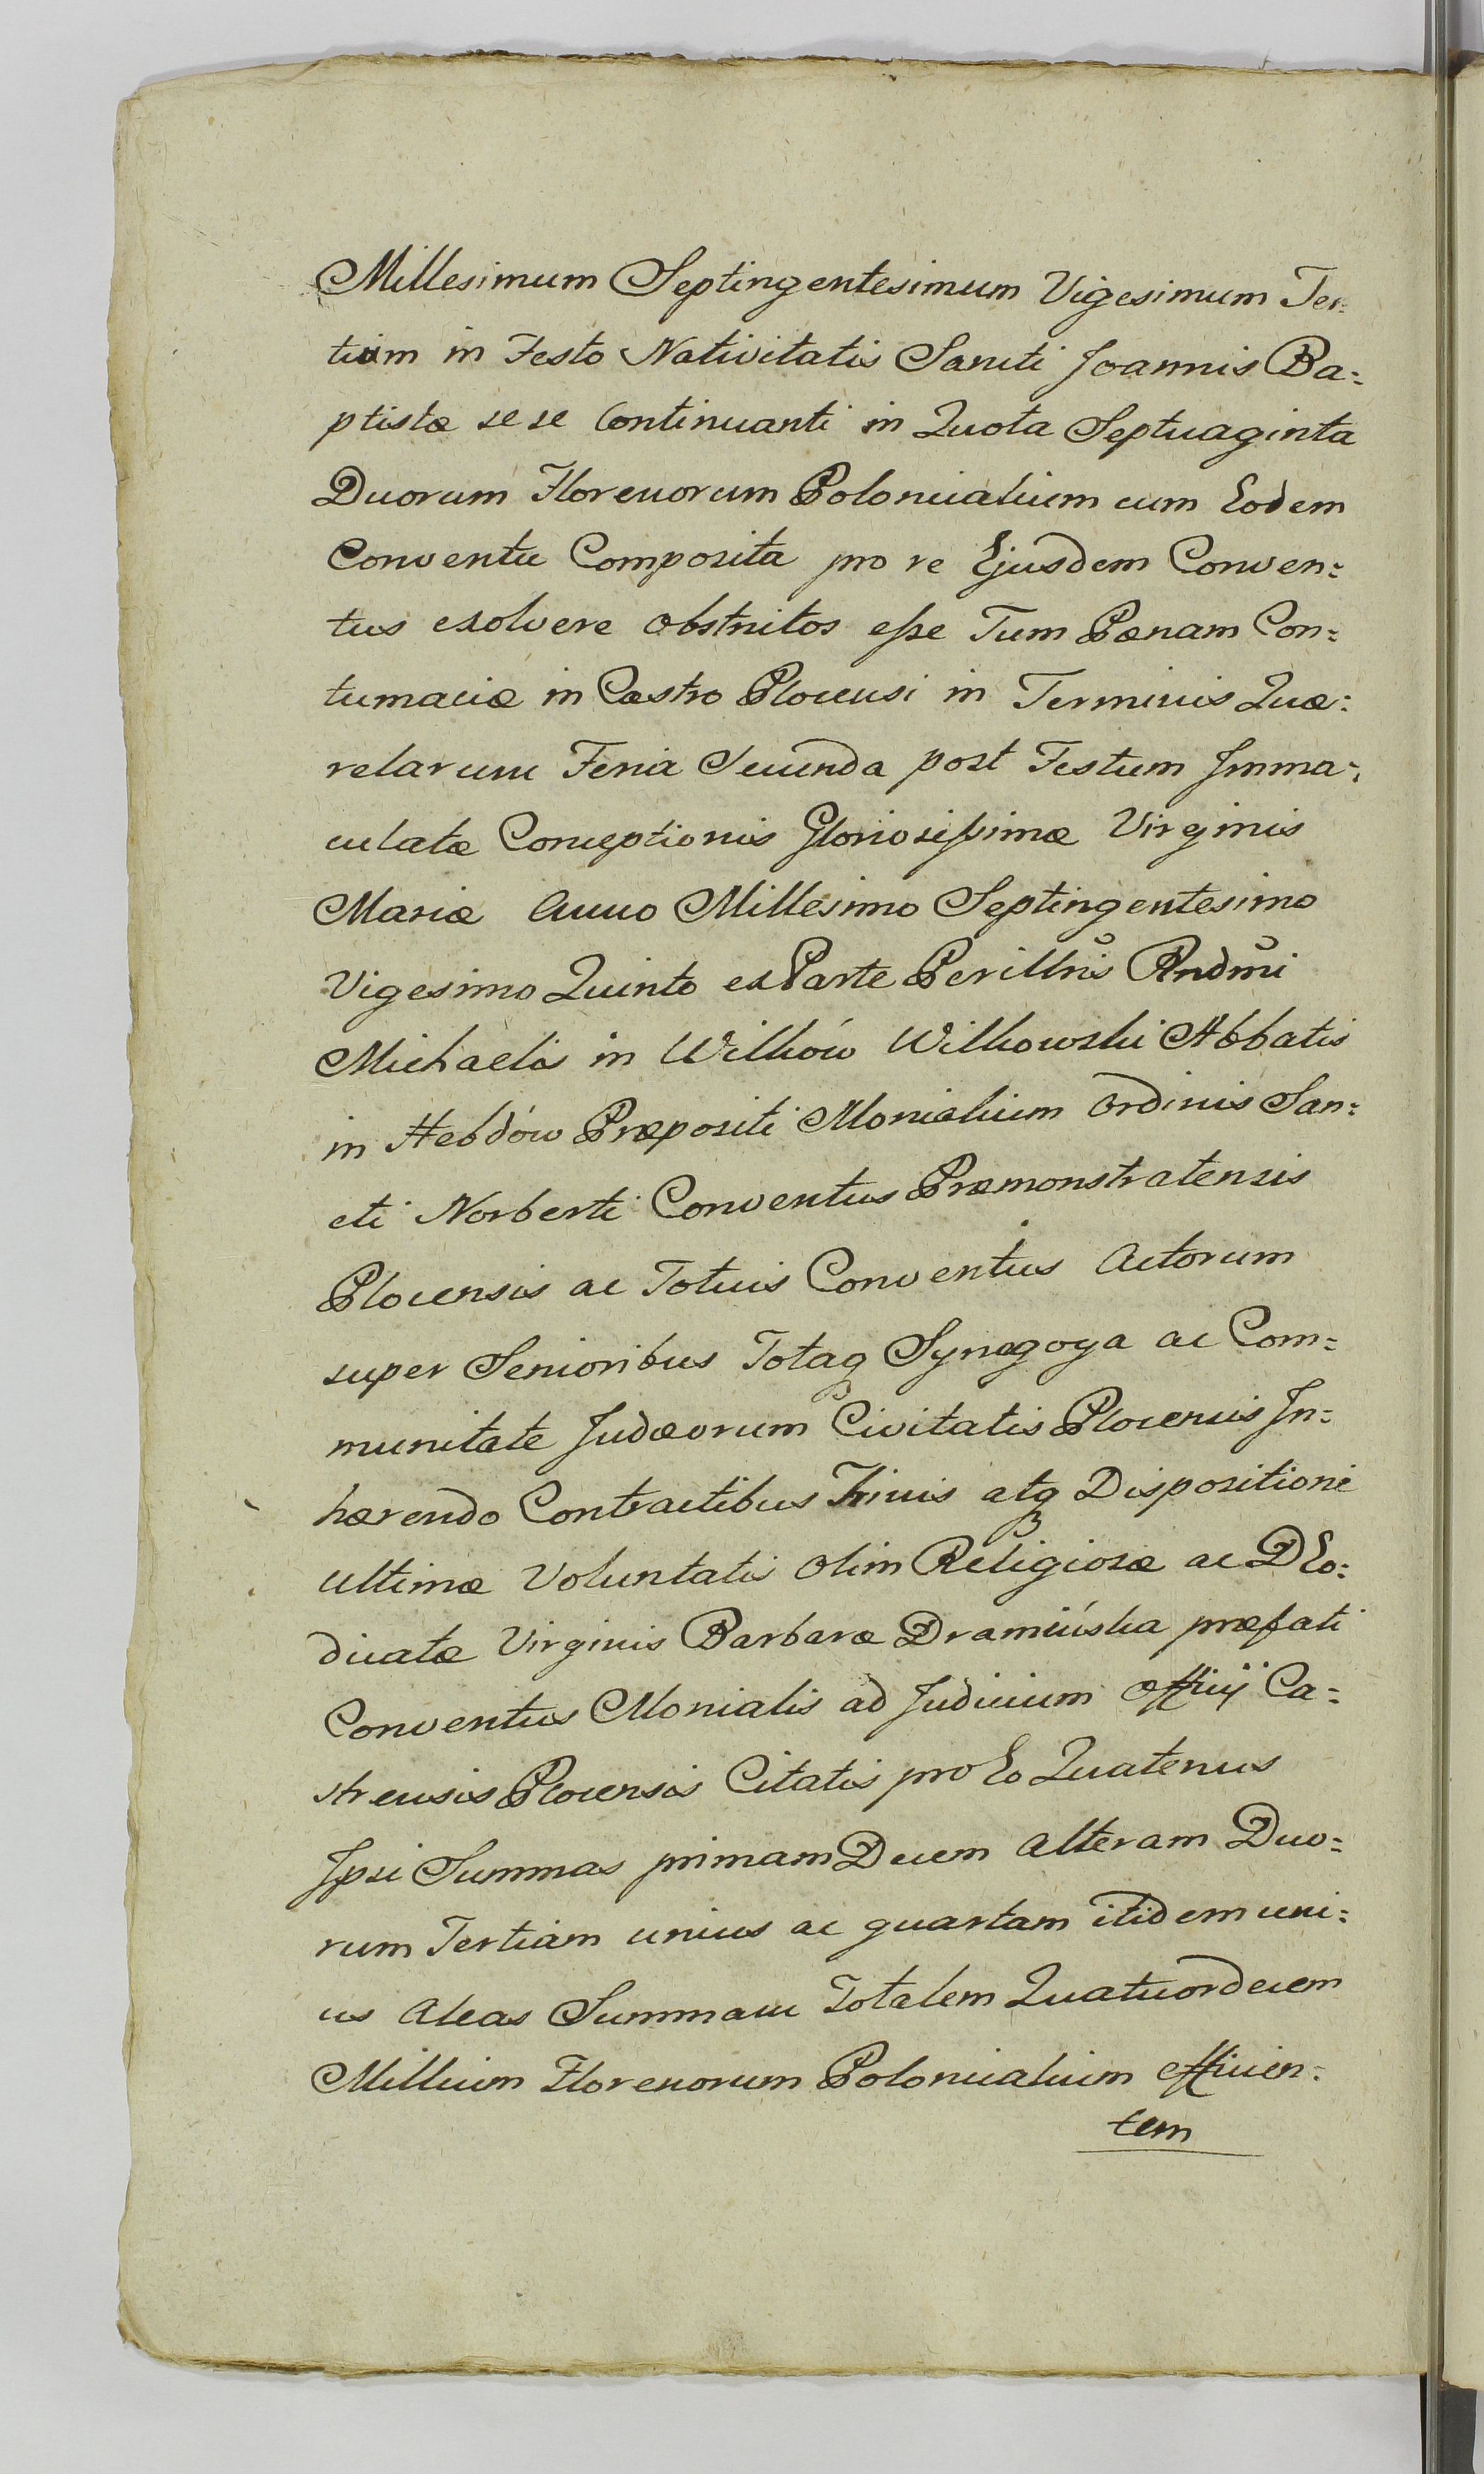 Millesimum Septingentesimum Vigesimum Ter=
tium in Festo Nativitatis Sancti Joannis Ba=
ptistæ sese Continuanti in Quota Septuaginta
Duorum Florenorum Polonicalium cum Eodem
Conventu Composita pro re Ejusdem Conven=
tus exolvere obstrictos eſse Tum Pænam Con=
tumaciæ in Castro Plocensi in Terminis Quæ=
relarum Feria Secunda post Festum Imma=
culatæ Conceptionis Gloriosiſsimæ Virginis
Mariæ Anno Millesimo Septingentesimo
Vigesimo Quinto ex Parte Perillris Rndmi
Michaelis in Wilków Wilkowski Abbatis
in Hebdów Præpositi Monialium Ordinis San=
cti Norberti Conventus Præmonstratensis
Plocensis ac Totius Conventus Actorum
super Senioribus Totaq Synagoga ac Com=
munitate Judæorum Civitatis Plocensis In=
hærendo Contractibus Trinis atq Dispositioni
ultimæ Voluntatis olim Religiosæ ac DEo=
dicatæ Virginis Barbaræ Dramińska præfati
Conventus Monialis ad Judicium Officij Ca=
strensis Plocensis Citatis pro Eo Quatenus
Ipsi Summas primam Decem alteram Duo=
rum Tertiam unius ac quartam itidem uni=
us aleas Summam Totalem Quatuordecem
Millium Florenorum Polonicalium efficien=
tem